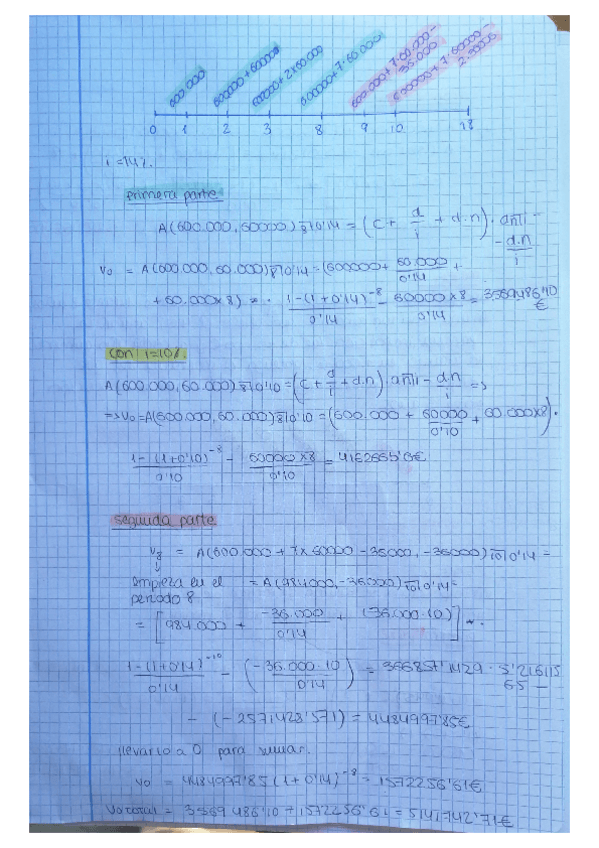 600.000 600000 + 60000 600000 + 2x60000 600000 + 7·60.000 600.000 + 7·60.000 - 36.000 600000 + 7·60000 - 2·36000
0 1 2 3 8 9 10 18
i = 14%.
primera parte
A(600.000, 60000) 8̅|0'14 = (c + d/i + d·n) · an̅|i - d·n/i
V0 = A(600.000, 60.000) 8̅|0'14 = (600000 + 60.000/0'14 +
+ 60.000x8) · 1-(1+0'14)^-8/0'14 - 60000x8/0'14 = 3569486'10 €
con i=10%.
A(600.000, 60.000) 8̅|0'10 = (c + d/i + d·n) · an̅|i - d·n/i =>
=> V0 = A(600.000, 60.000) 8̅|0'10 = (600.000 + 60000/0'10 + 60.000x8) ·
1-(1+0'10)^-8/0'10 - 60000x8/0'10 =
segunda parte
V8 = A(600.000 + 7x60000 - 36000, -36000) 10̅|0'14 =
empieza en el = A(984000, -36000) 10̅|0'14 =
periodo 8
= [984.000 + -36.000/0'14 + (36.000·10)] ·
1-(1+0'14)^-10/0'14 - (-36.000·10/0'14) = 366857'1429 · 5'216115
65 -
- (-2571428'571) = 4484997'85€
llevarlo a 0 para sumar.
V0 = 4484997'85 (1+0'14)^-8 = 1572256'61€
V0 total = 3569486'10 + 1572256'61 = 5141742'71€